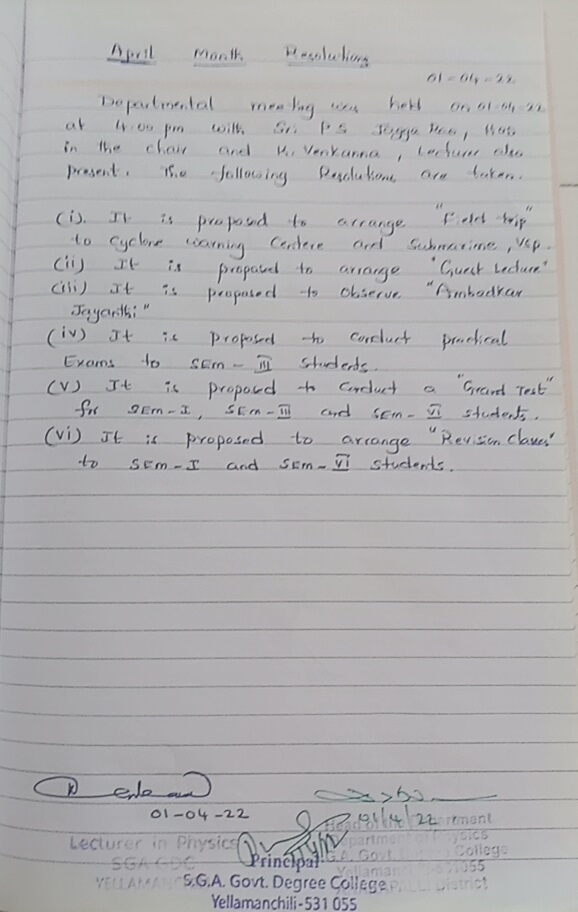 April Month Resolutions
01-04-22
Departmental meeting was held on 01-04-22
at 4.00 pm with Sri P S Jagga Rao, HOD
in the chair and K. Venkanna, Lecturer also
present. The following Resolutions are taken.
(i). It is proposed to arrange "Field trip"
to Cyclone warning Centere and Submarine, VSP.
(ii) It is proposed to arrange "Guest Lecture"
(iii) It is proposed to observe "Ambadkar
Jayanthi"
(iv) It is proposed to conduct practical
Exams to SEm-III students.
(v) It is proposed to conduct a "Grand Test"
for SEm-I, SEm-III and SEm-VI students.
(vi) It is proposed to arrange "Revision Classes"
to SEm-I and SEm-VI students.
01-04-22
01/4/22
Lecturer in Physics
SGA GDC
Head of the Department
Department of Physics
College
District
Principal
S.G.A. Govt. Degree College
Yellamanchili-531 055